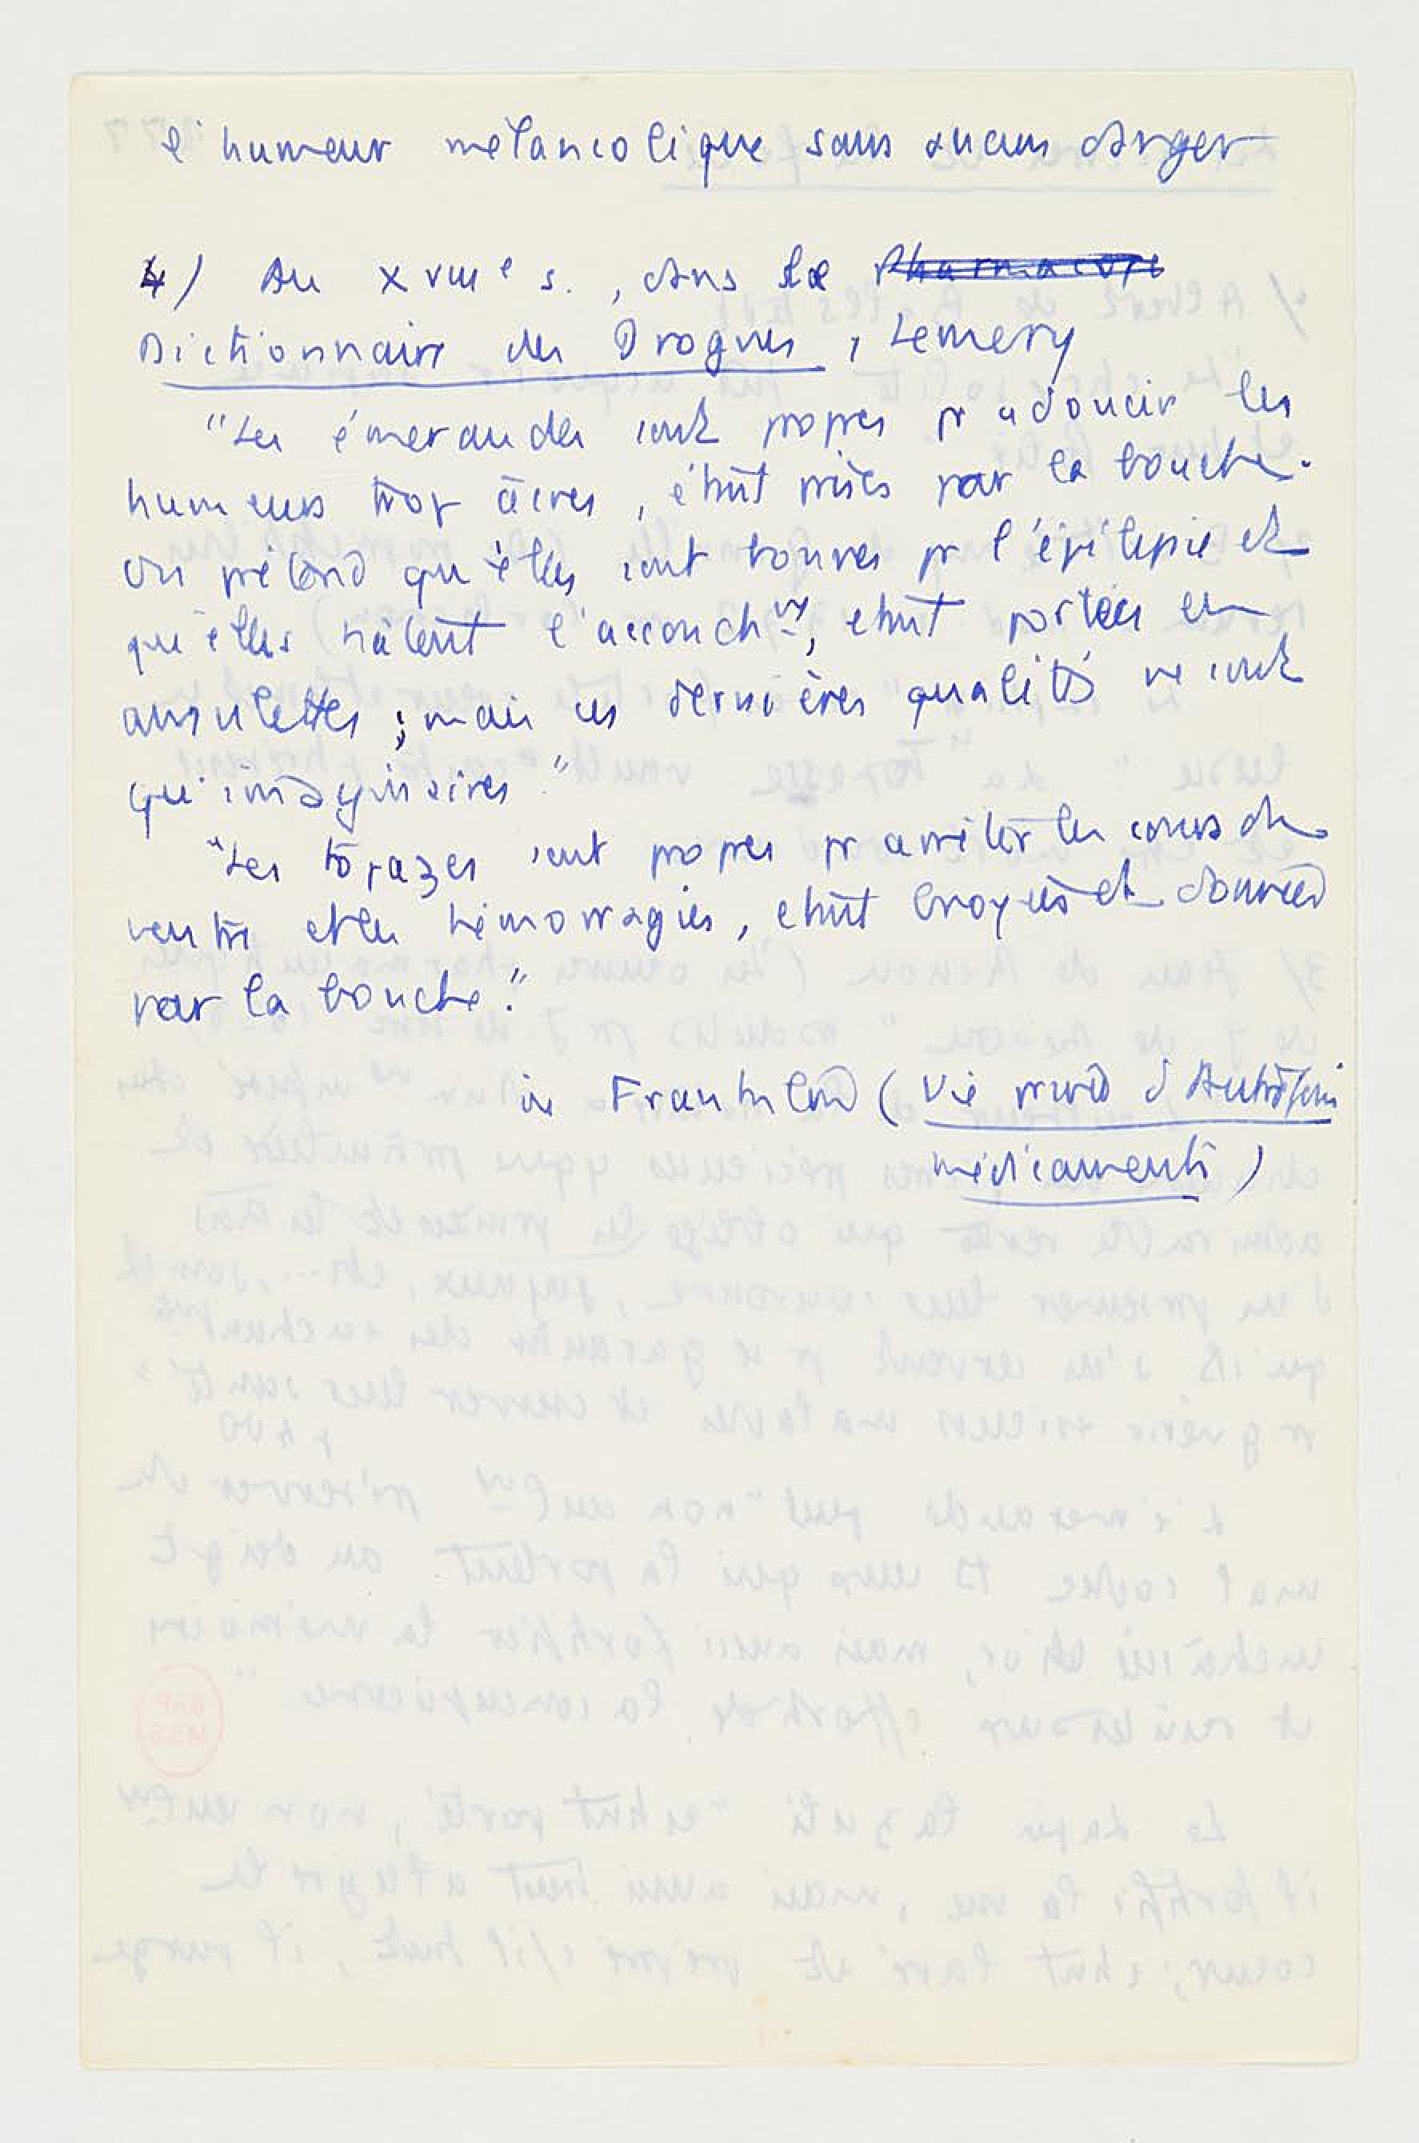 l'humeur mélancolique sans aucun danger
4) Au XVIIIe s., dans le Pharmacope
Dictionnaire des Drogues, Lemery
"Les émeraudes sont propres pr adoucir les
humeurs trop âcres, étant prises par la bouche.
On prétend qu'elles sont bonnes pr l'épilepsie et
qu'elles hâtent l'accouchmt, étant portées en
amulettes ; mais ces dernières qualités ne sont
qu'imaginaires."
"Les topazes sont propres pr arrêter les cours de
ventre et les hémorragies, étant broyées et données
par la bouche."
in Franklin (Vie privée d'Autrefois
médicaments)